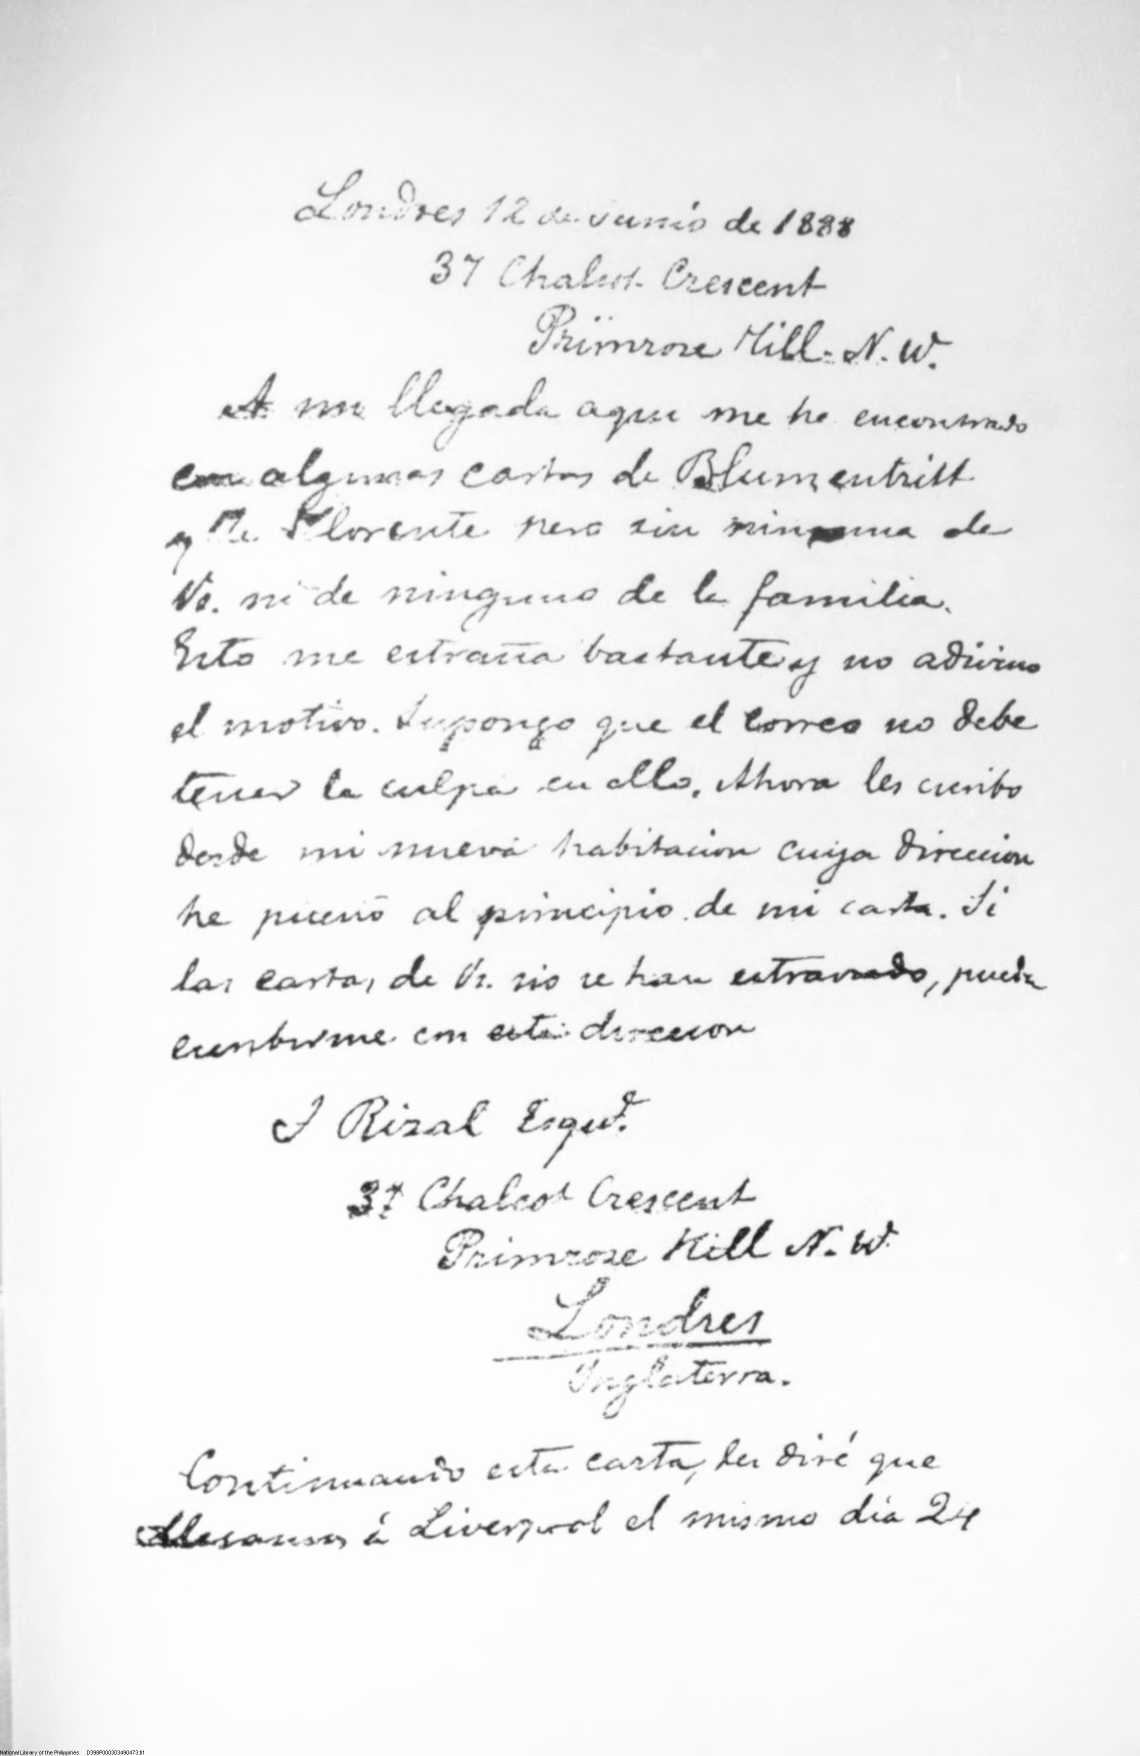 Londres 12 de Junio de 1888
37 Chalcot Crescent
Primrose Hill. N. W.
A mi llegada aqui me he encontrado
con algunas cartas de Blumentritt
y de Llorente pero sin ninguna de
Vs. ni de ninguno de la familia.
Esto me estraña bastante y no adivino
el motivo. Supongo que el correo no debe
tener la culpa en ello. Ahora les escribo
desde mi nueva habitacion cuya direccion
he puesto al principio de mi carta. Si
las cartas de Vs. no se han estraviado, pueden
escribirme con esta direccion
J Rizal Esqre.
37 Chalcot Crescent
Primrose Hill N. W.
Londres
Inglaterra.
Continuando esta carta, les diré que
llegamos á Liverpool el mismo dia 24
National Library of the Philippines